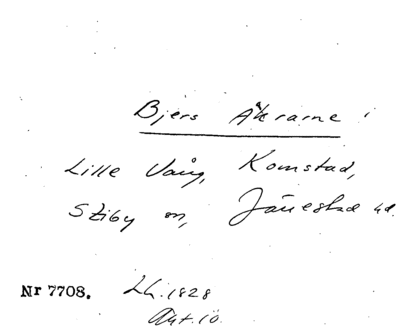 Bjers Åkrarne
Lille Vång, Komstad,
Stiby sn, Järrestad hd.
Nr 7708. LL. 1828
Akt. 10.